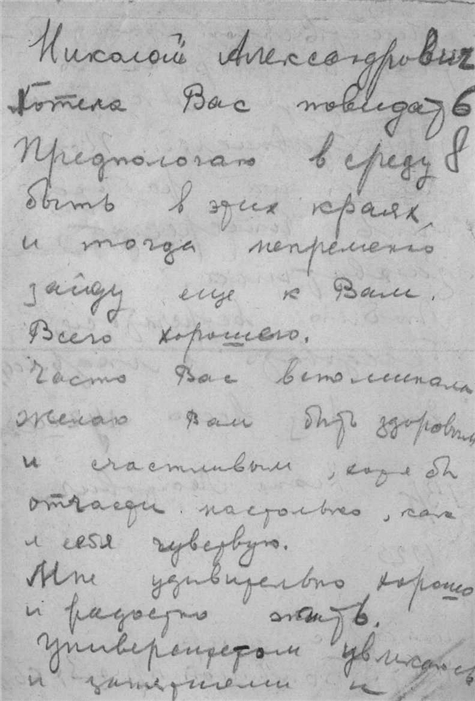 Николай Александрович
Хотела Вас повидать
Предпологаю в среду 8
быть в этих краях
и тогда непременно
зайду еще к Вам.
Всего хорошего.
Часто Вас вспоминала
Желаю Вам быть здоровым
и счастливым, хотя бы
отчасти настолько, как
я себя чувствую.
Мне удивительно хорошо
и радостно жить.
Университетом увлекаюсь
и занятиями и